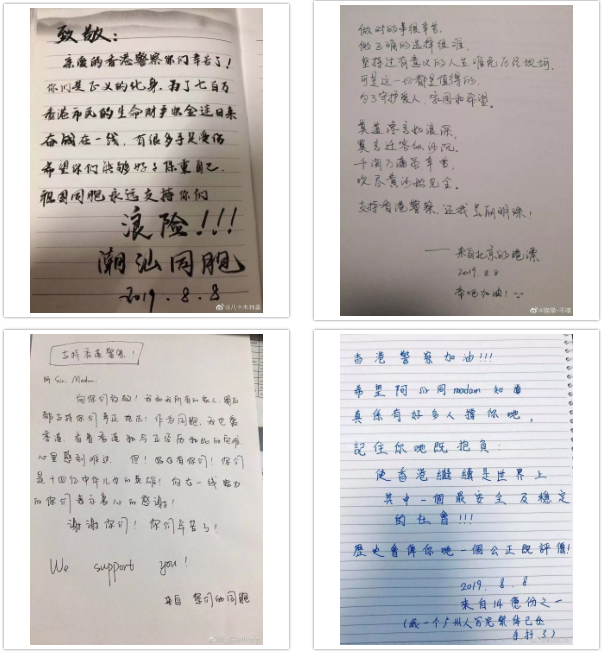 致敬：
亲爱的香港警察你们辛苦了！
你们是正义的化身，为了七百万
香港市民的生命财产安全连日来
奋战在一线，有很多手足受伤
希望你们能够好好保重自己，
祖国同胞永远支持你们
浪险！！！
潮汕同胞
2019.8.8
@八十木料盡
做对的事很辛苦，
做正确的选择很难，
坚持过有意义的人生
可是这一切都是值得的，
为了守护爱人、家园和希望。
莫道谗言如浪深，
莫言迁客似沙沉。
千淘万漉虽辛苦，
吹尽黄沙始见金。
支持香港警察，还我美丽明珠！
——来自北京的港漂
2019.8.8
支持香港警察！
所有 Sir、Madam
向你们致敬！我和我所有的家人、朋友
都支持你们严正执法！作为同胞，我也爱
香港，看着香港
心里感到难过。但！好在有你们！你们
是十四亿中华儿女的英雄！向在一线努力
的你们表示衷心的感谢！
谢谢你们！你们辛苦了！
We support you！
来自 您们的同胞
香港警察加油!!!
希望阿sir同madam知道
真係有好多人撐你哋。
記住你哋既抱負：
使香港繼續是世界上
其中一個最安全及穩定
的社會!!!
歷史會俾你哋一個公正既評價!
2019.8.8
來自14億份之一
(成一个广州人写完繁体已经
手抖了)